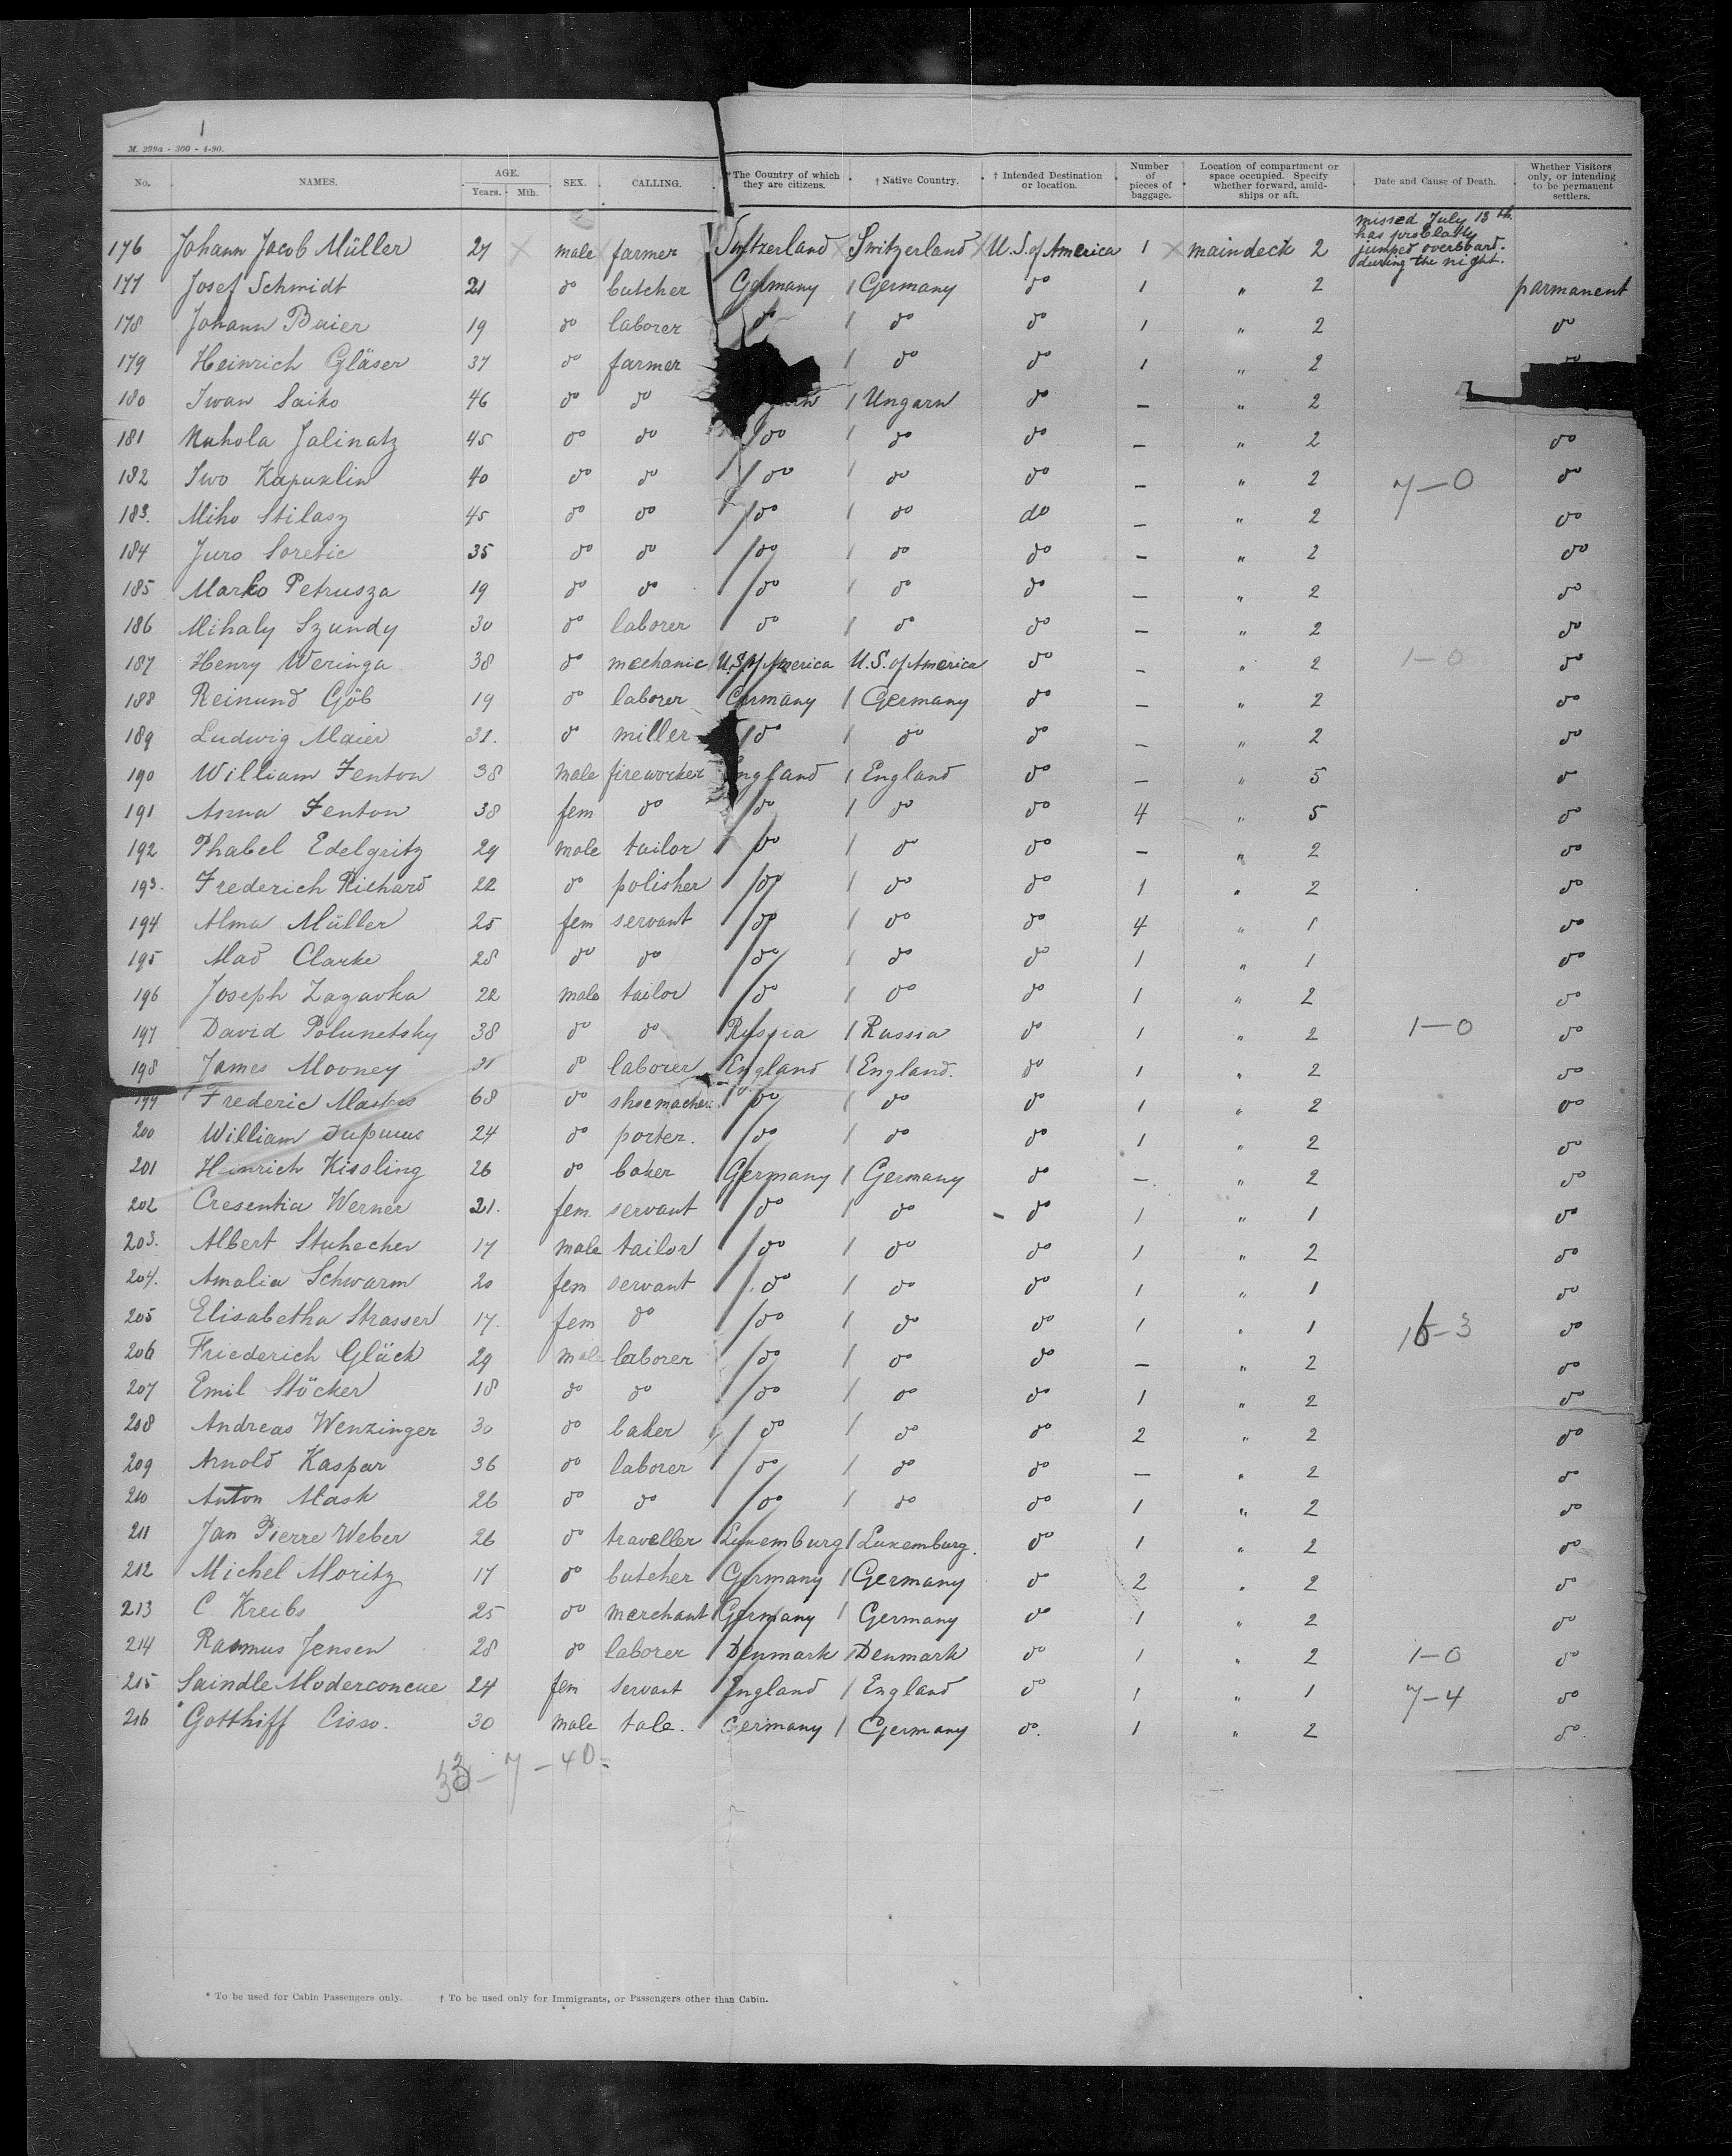 1
M. 299a - 300 - 4-90.
No. NAMES. AGE. Years. Mth. SEX. CALLING. † The Country of which they are citizens. † Native Country. † Intended Destination or location. Number of pieces of baggage. Location of compartment or space occupied. Specify whether forward, amidships or aft. Date and Cause of Death. Whether Visitors only, or intending to be permanent settlers.
missed July 13th.
has problably
jumped overboard.
during the night.
176 Johann Jacob Müller 27 male farmer Switzerland Switzerland U.S. of America 1 maindeck 2
177 Josef Schmidt 21 do butcher Germany Germany do 1 " 2 parmanent
178 Johann Baier 19 do laborer do do do 1 " 2 do
179 Heinrich Gläser 37 do farmer do do 1 " 2 do
180 Iwan Saiko 46 do do Ungarn do — " 2
181 Mahola Jalinatz 45 do do do do do — " 2 do
182 Iwo Kapuxlin 40 do do do do do — " 2 7—0 do
183. Miho Stilasz 45 do do do do do — " 2 do
184 Juro Soretic 35 do do do do do — " 2 do
185 Marko Petrusza 19 do do do do do — " 2 do
186 Mihaly Szundy 30 do laborer do do do — " 2 do
187 Henry Weringa 38 do mechanic U.S. of America U.S. of America do — " 2 1—0 do
188 Reinund Göb 19 do laborer Germany Germany do — " 2 do
189 Ludwig Maier 31. do miller do do do — " 2 do
190 William Fenton 38 male fireworker England England do — " 5 do
191 Anna Fenton 38 fem do do do do 4 " 5 do
192 Phabel Edelgritz 29 male tailor do do do — " 2 do
193. Frederich Richard 22 do polisher do do do 1 " 2 do
194 Alma Müller 25 fem servant do do do 4 " 1 do
195 Mad Clarke 28 do do do do do 1 " 1 do
196 Joseph Zagavka 22 male tailor do do do 1 " 2 do
197 David Polunetsky 38 do do Russia Russia do 1 " 2 1—0 do
198 James Mooney 31 do laborer England England. do 1 " 2 do
199 Frederic Mastes 68 do shoemacher do do do 1 " 2 do
200 William 24 do porter. do do do 1 " 2 do
201 Heinrich Kissling 26 do baker Germany Germany do — " 2 do
202 Cresentia Werner 21. fem. servant do do do 1 " 1 do
203. Albert Stuhecher 17 male tailor do do do 1 " 2 do
204. Amalia Schwarm 20 fem servant do do do 1 " 1 do
205 Elisabetha Strasser 17. fem do do do do 1 " 1 16—3 do
206 Friederich Glück 29 male laborer do do do — " 2 do
207 Emil Stöcker 18 do do do do do 1 " 2 do
208 Andreas Wenzinger 30 do baker do do do 2 " 2 do
209 Arnold Kaspar 36 do laborer do do do — " 2 do
210 Anton Mask 26 do do do do do 1 " 2 do
211 Jan Pierre Weber 26 do traveller Luxemburg Luxemburg. do 1 " 2 do
212 Michel Moritz 17 do butcher Germany Germany do 2 " 2 do
213 C. Kreibs 25 do merchant Germany Germany do 1 " 2 do
214 Rasmus Jensen 28 do laborer Denmark Denmark do 1 " 2 1—0 do
215 Saindle Moderconcue 24 fem servant England England do 1 " 1 7—4 do
216 Gotthiff Cisso. 30 male tale. Germany Germany do. 1 " 2 do.
33—7—40=
* To be used for Cabin Passengers only. † To be used only for Immigrants, or Passengers other than Cabin.